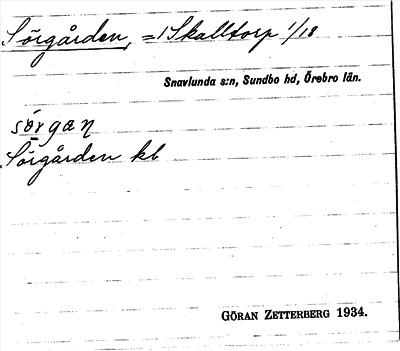 Sörgården, =1 Skalltorp 1/18
Snavlunda s:n, Sundbo hd, Örebro län.
sörgæn
Sörgården kb
GÖRAN ZETTERBERG 1934.